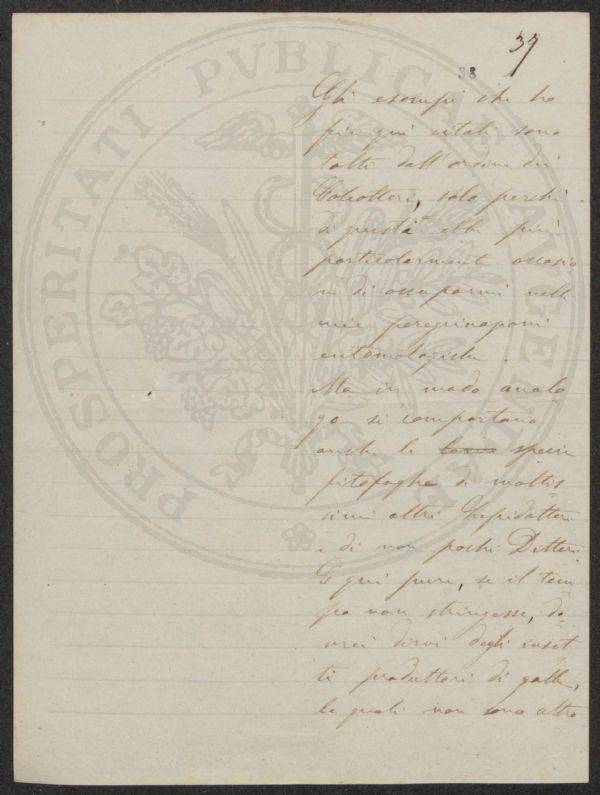 37
38
Gli esempi che ho
fin qui citati sono
tolti dall'ordine dei
Coleotteri, solo perchè
di questi ebbi più
particolarmente occasio
ne di occuparmi nelle
mie peregrinazioni
entomologiche.
Ma in modo analo
go si comportano
anche le specie
fitofaghe di moltis
simi altri Lepidotteri
e di non pochi Ditteri.
E qui pure, se il tem
po non stringesse, do
vrei dirvi degli inset
ti produttori di galle,
le quali non sono altro
PROSPERITATI PVBLICAE AVGENDAE